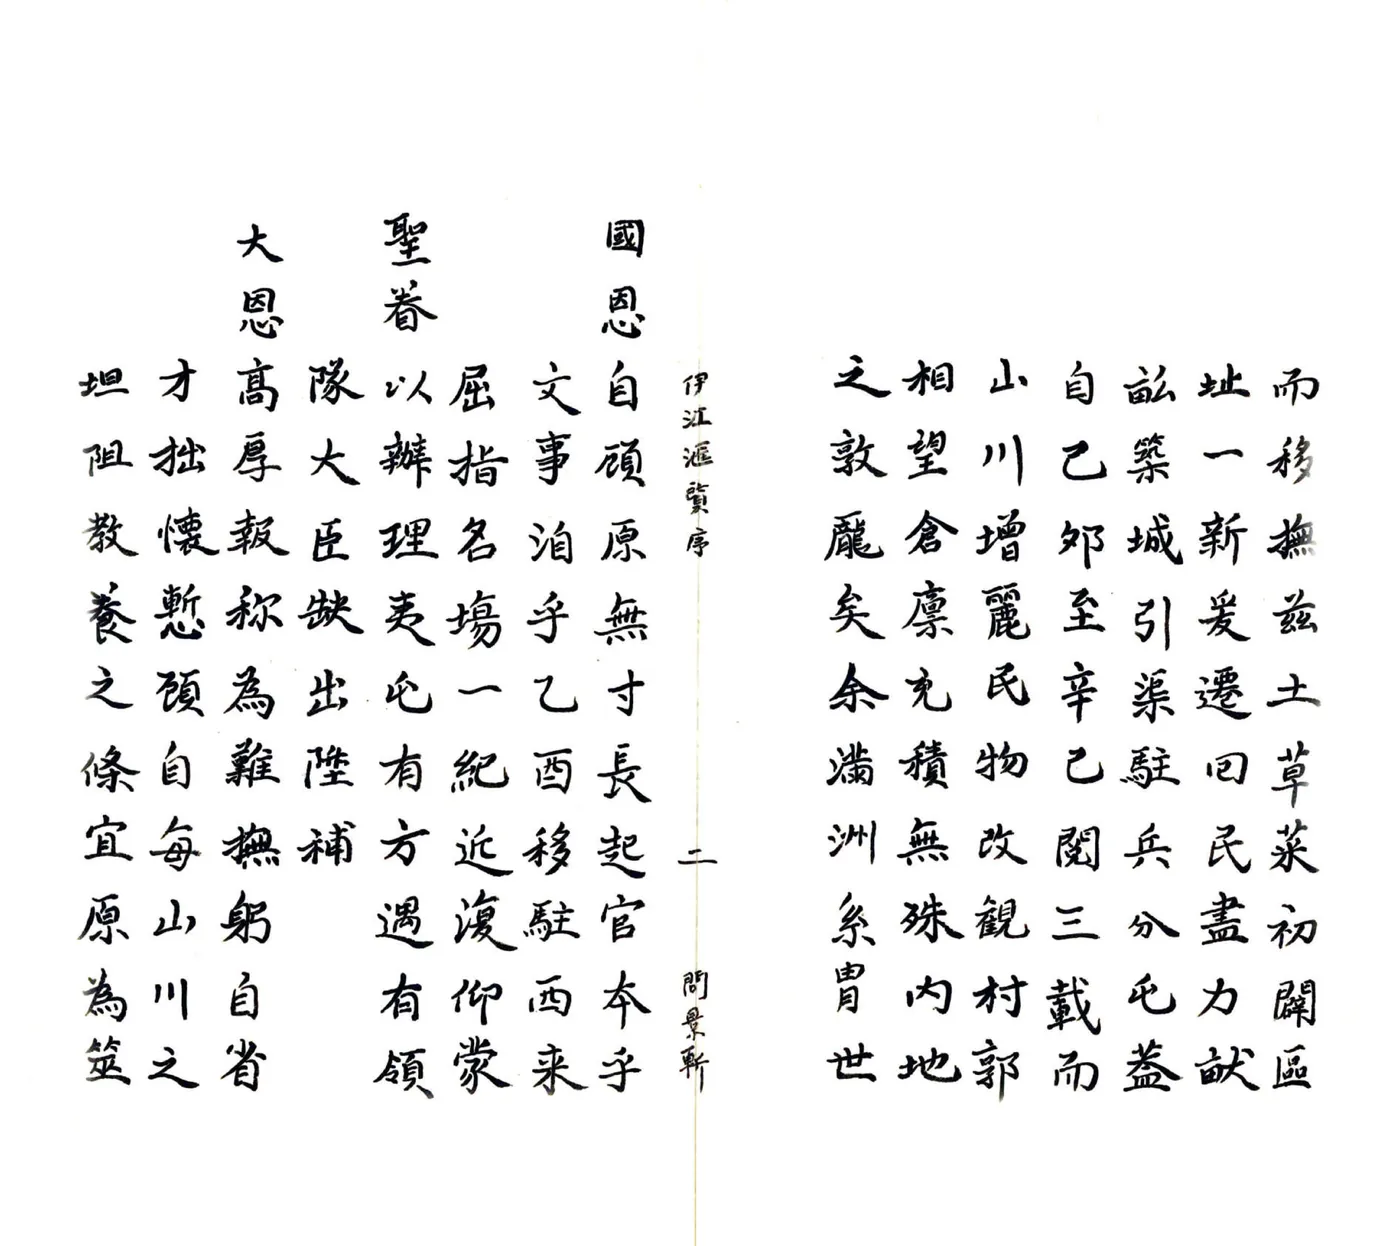 而移撫茲土草萊初闢區
址一新爰遷回民盡力畎
畝築城引渠駐兵分屯蓋
自己夘至辛己閱三載而
山川增麗民物改觀村郭
相望倉廪充積無殊内地
之敦龐矣余滿洲糸胄世
伊江滙覽序
二
問景軒
國恩自顧原無寸長起官本乎
文事洎乎乙酉移駐西来
屈指名塲一紀近復仰蒙
聖眷以辦理夷屯有方遇有領
隊大臣缺出陞補
大恩高厚報称為難撫躬自省
才拙懷慙顧自每山川之
坦阻教養之條宜原為筮